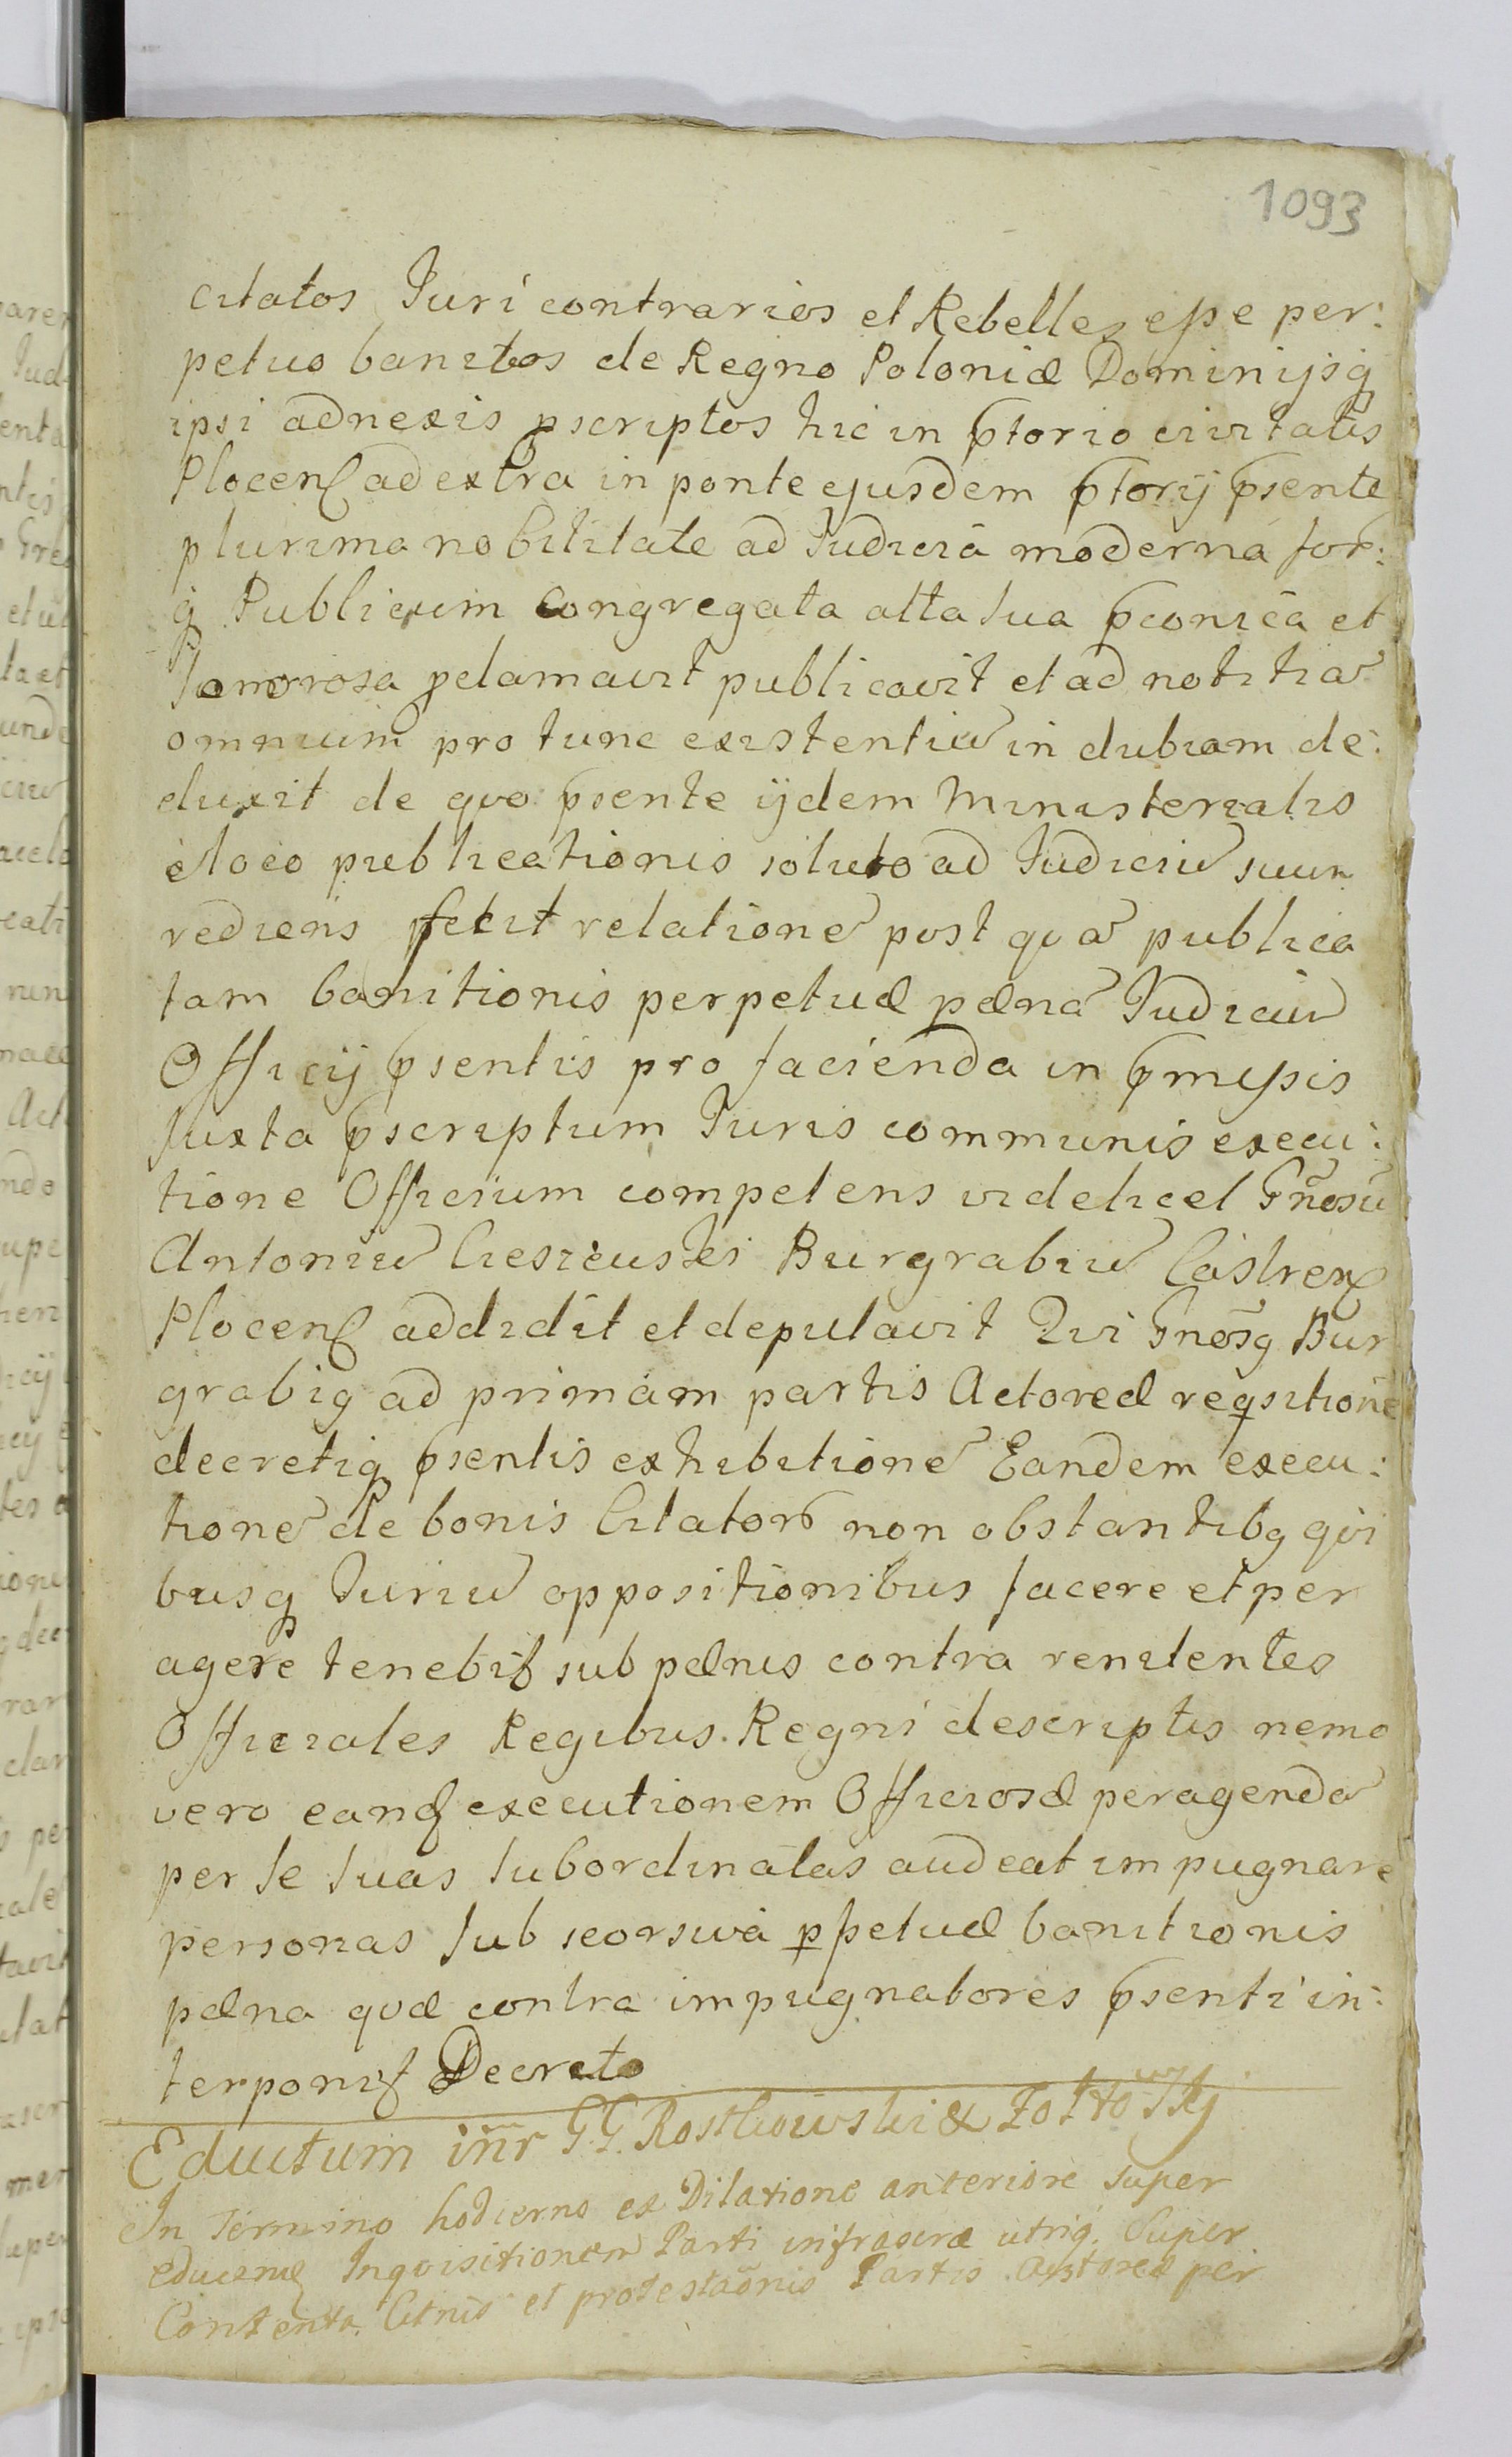 1093
citatos Juri contrarios et Rebelles esse per:
petuo banitos de Regno Poloniæ Dominijsq
ipsi adnexis pscriptos hic in ptorio civitatis
Plocens ad extra in ponte ejusdem ptorij psente
plurima nobilitate ad Judicia moderna for:
q Publicum congregata alta sua pconica et
pclamavit publicavit et ad notitia
omnium pro tunc existentiu in dubiam de:
duxit de quo psente ijdem Ministerialis
è loco publicationis soluto ad Judiciu suum
rediens fecit relatione post qua publica
tam banitionis perpetuæ pæna Judiciu
Officij psentis pro facienda in pmissis
Juxta pscriptum Juris communis execu:
tione Officium competens videlicet Gñosu
Antoniu Burgrabiu Castrens
Plocens addidit et deputavit Qui Gnosq Bur
grabiq ad primam partis Actoreæ reqsitione
decretiq psentis exhibitione Eandem execu:
tione de bonis Citator non obstantibq qui
busq Juriu oppositionibus facere et per
agere tenebit sub pænis contra renitentes
Officiales Regibus. Regni descriptis nemo
vero eand executionem Officiosæ peragenda
per se suas subordinatas audeat impugnare
personas sub seorsiva ppetuæ banitionis
pæna quæ contra impugnatores psenti in:
terponit Decreto
Eductum inr GG. Rostkowski &
In Termino hodierno ex Dilatione anteriore super
Inqvisitionem Parti infrascræ utriq. Super
Contenta Citnis et protestaonis Partis Actoreæ per